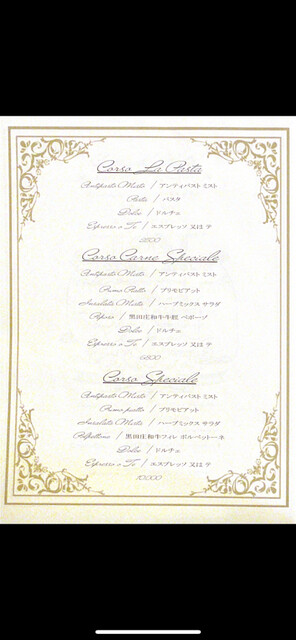 Corso La Pasta
Antipasto Misto / アンティパスト ミスト
Pasta / パスタ
Dolce / ドルチェ
Espresso o Te / エスプレッソ 又は テ
3500
Corso Carne Speciale
Antipasto Misto / アンティパスト ミスト
Primo Piatto / プリモピアット
Insalata Mista / ハーブミックス サラダ
Peposo / 黒田庄和牛牛脛 ペポーゾ
Dolce / ドルチェ
Espresso o Te / エスプレッソ 又は テ
6800
Corso Speciale
Antipasto Misto / アンティパスト ミスト
Primo piatto / プリモピアット
Insalata Mista / ハーブミックス サラダ
Polpettone / 黒田庄和牛フィレ ポルペットーネ
Dolce / ドルチェ
Espresso o Te / エスプレッソ 又は テ
10,000